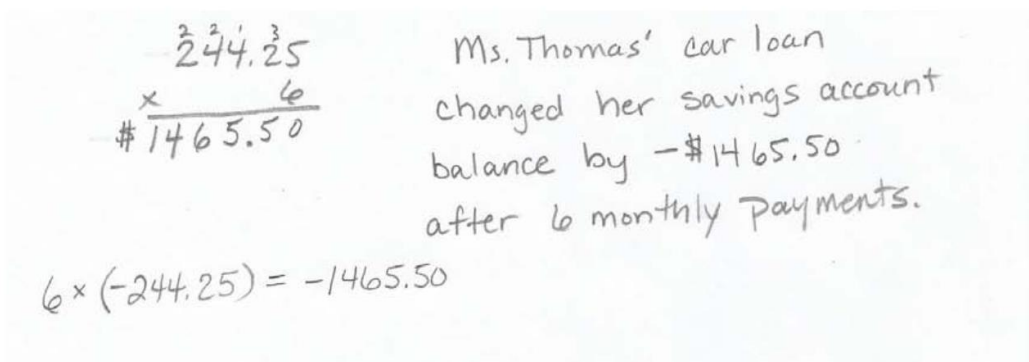 2 2 1 3
244.25
× 6
$1465.50
Ms. Thomas' car loan
changed her savings account
balance by -$1465.50
after 6 monthly payments.
6 × (-244.25) = -1465.50